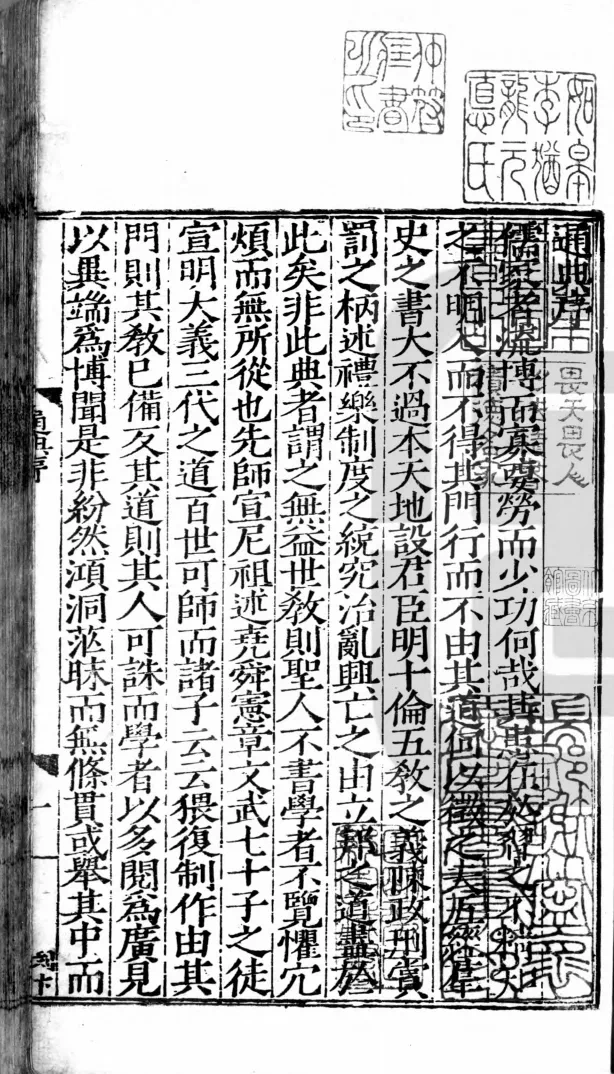 如皋
李猶
龍元
悳氏
通典序
畏天畏人
儒家者流博而寡要勞而少功何哉其患在於習之不精知
之不明入而不得其門行而不由其道何以徵之夫五經羣
史之書大不過本天地設君臣明十倫五教之義陳政刑賞
罰之柄述禮樂制度之統究治亂興亡之由立邦之道盡於
此矣非此典者謂之無益世教則聖人不書學者不覽懼冗
煩而無所從也先師宣尼祖述堯舜憲章文武七十子之徒
宣明大義三代之道百世可師而諸子云云猥復制作由其
門則其教已備反其道則其人可誅而學者以多閱為廣見
以異端為博聞是非紛然澒洞茫昧而無條貫或舉其中而
通典序
一